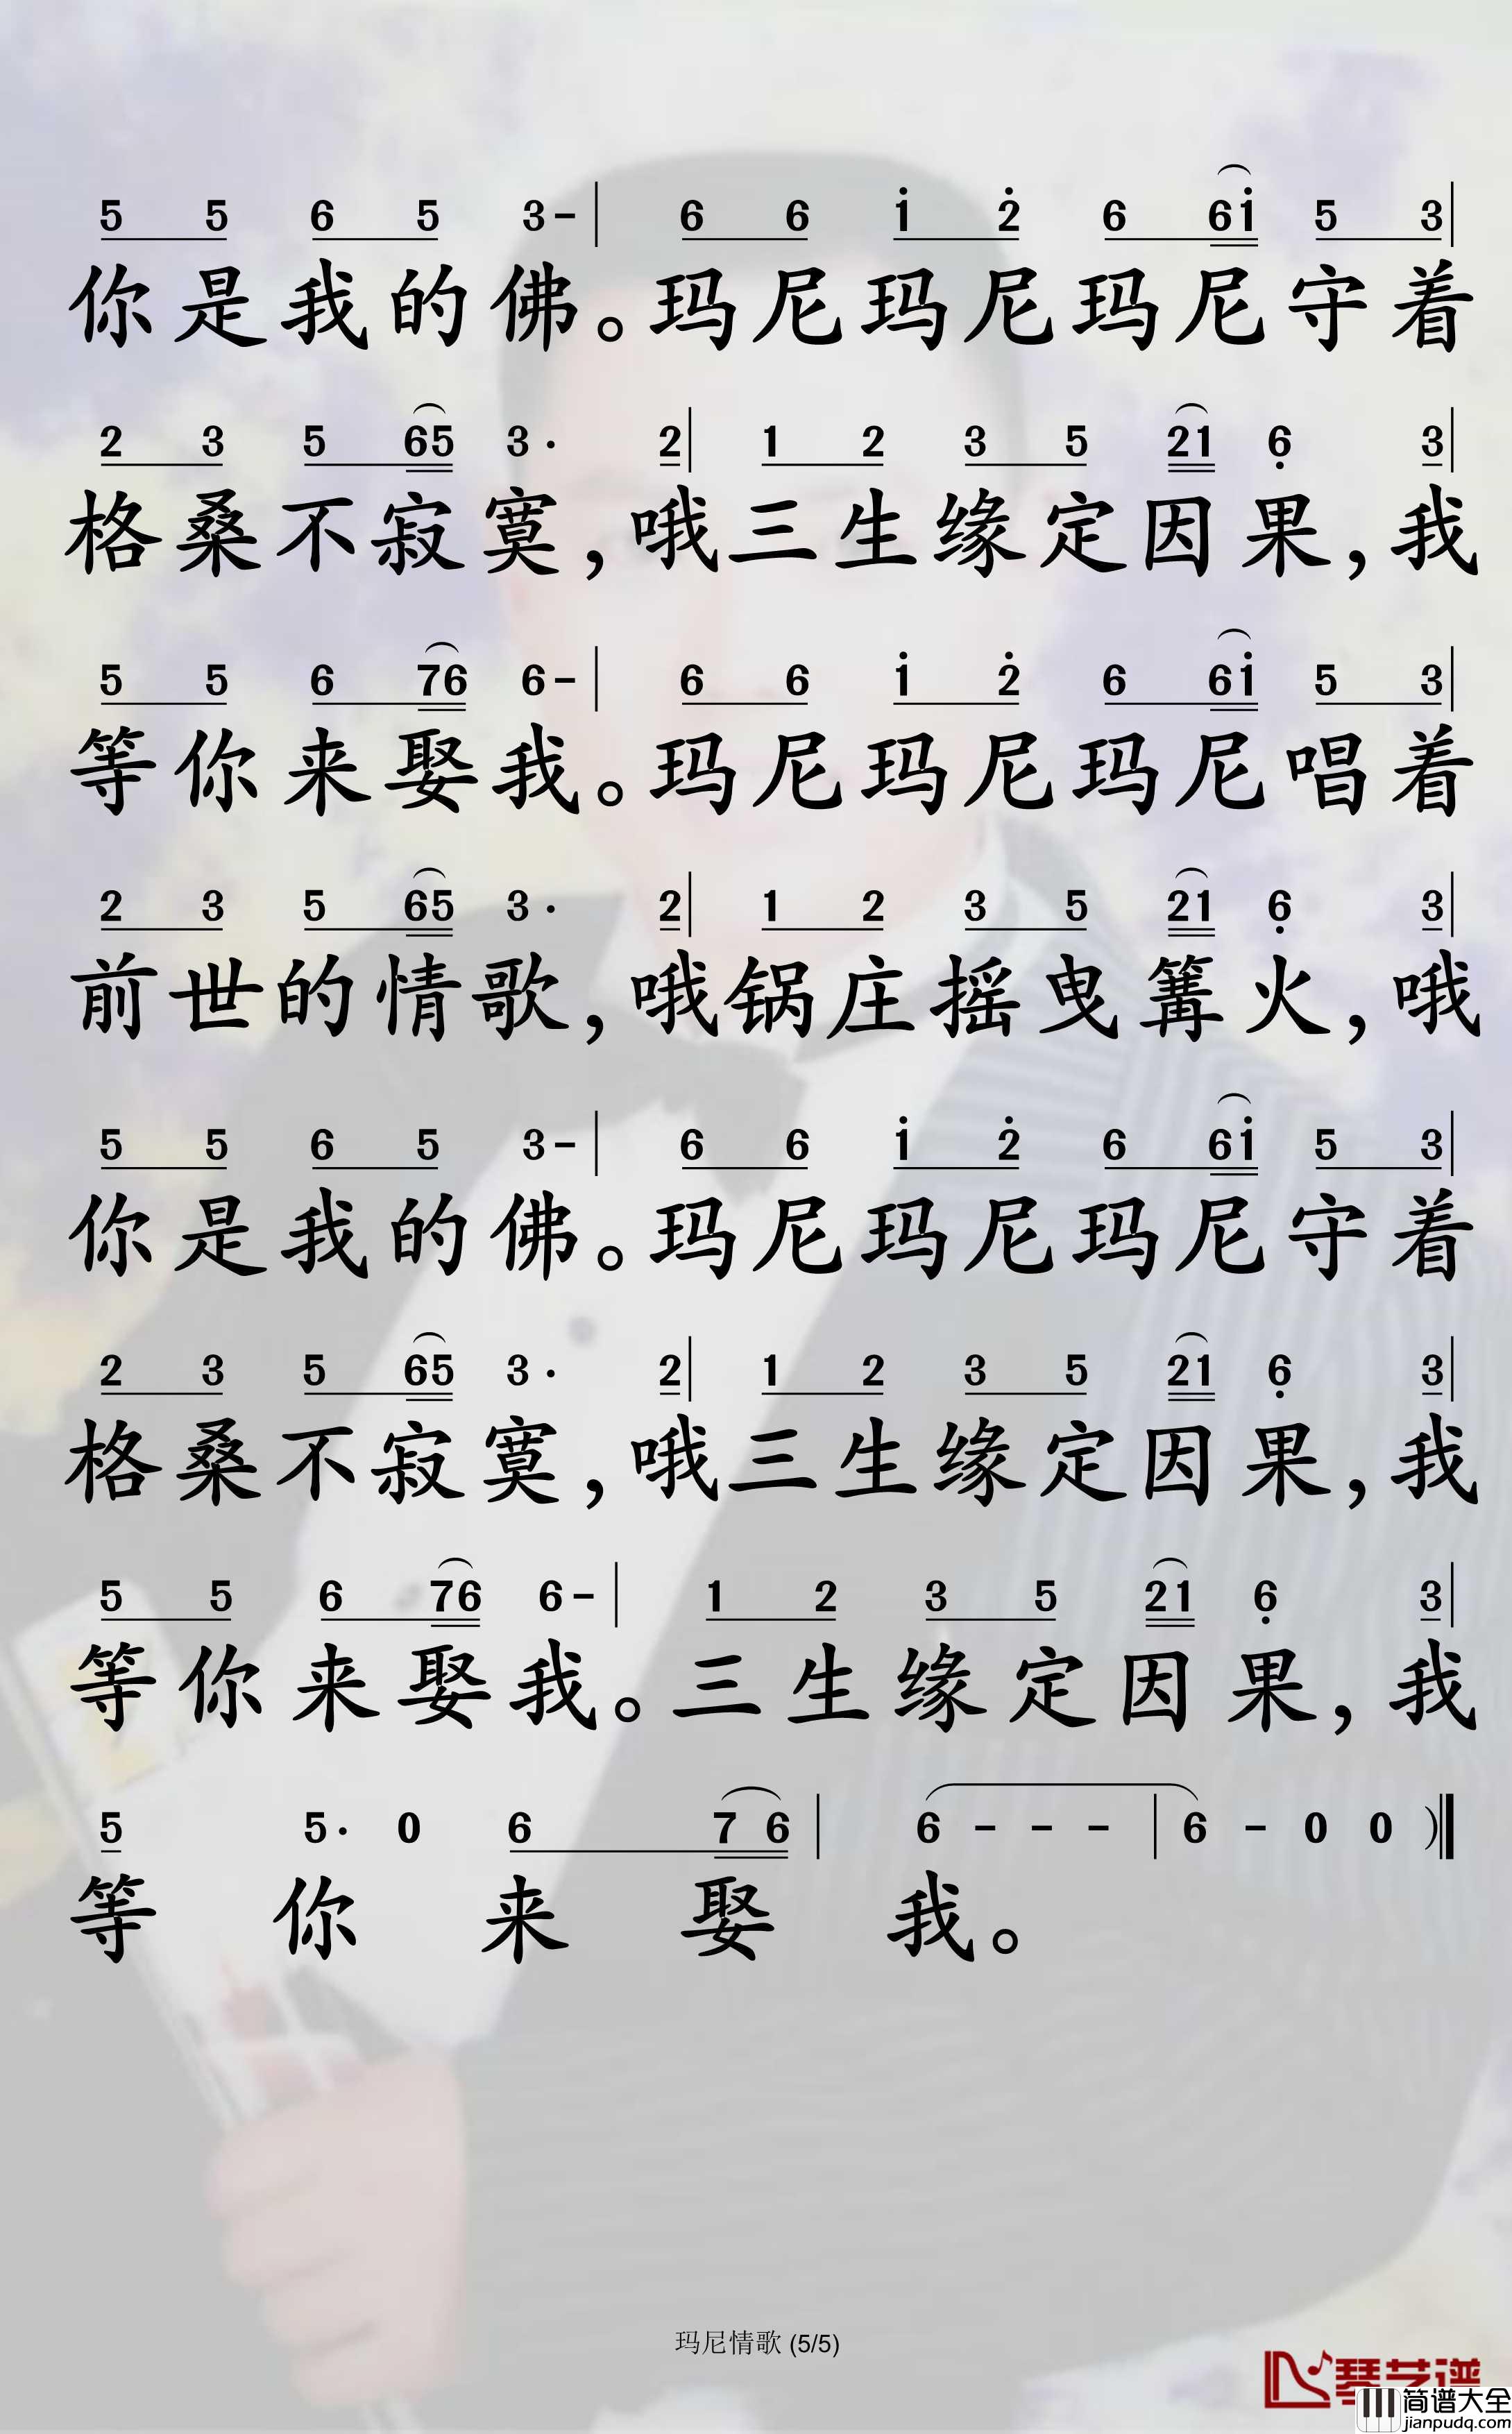 5 5 6 5 3 - | 6 6 1̇ 2̇ 6 61̇ 5 3 |
你是我的佛。玛尼玛尼玛尼守着
2 3 5 65 3· 2 | 1 2 3 5 21 6̣ 3 |
格桑不寂寞，哦三生缘定因果，我
5 5 6 76 6 - | 6 6 1̇ 2̇ 6 61̇ 5 3 |
等你来娶我。玛尼玛尼玛尼唱着
2 3 5 65 3· 2 | 1 2 3 5 21 6̣ 3 |
前世的情歌，哦锅庄摇曳篝火，哦
5 5 6 5 3 - | 6 6 1̇ 2̇ 6 61̇ 5 3 |
你是我的佛。玛尼玛尼玛尼守着
2 3 5 65 3· 2 | 1 2 3 5 21 6̣ 3 |
格桑不寂寞，哦三生缘定因果，我
5 5 6 76 6 - | 1 2 3 5 21 6̣ 3 |
等你来娶我。三生缘定因果，我
5 5· 0 6 7 6 | 6 - - - | 6 - 0 0 )‖
等你来娶我。
玛尼情歌 (5/5)
琴艺谱
简谱大全
jianpudq.com